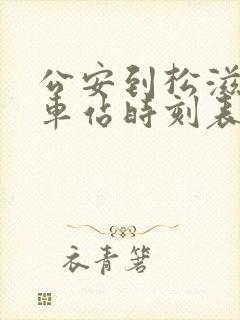 公安到松滋
車佔時刻表
衣青箬